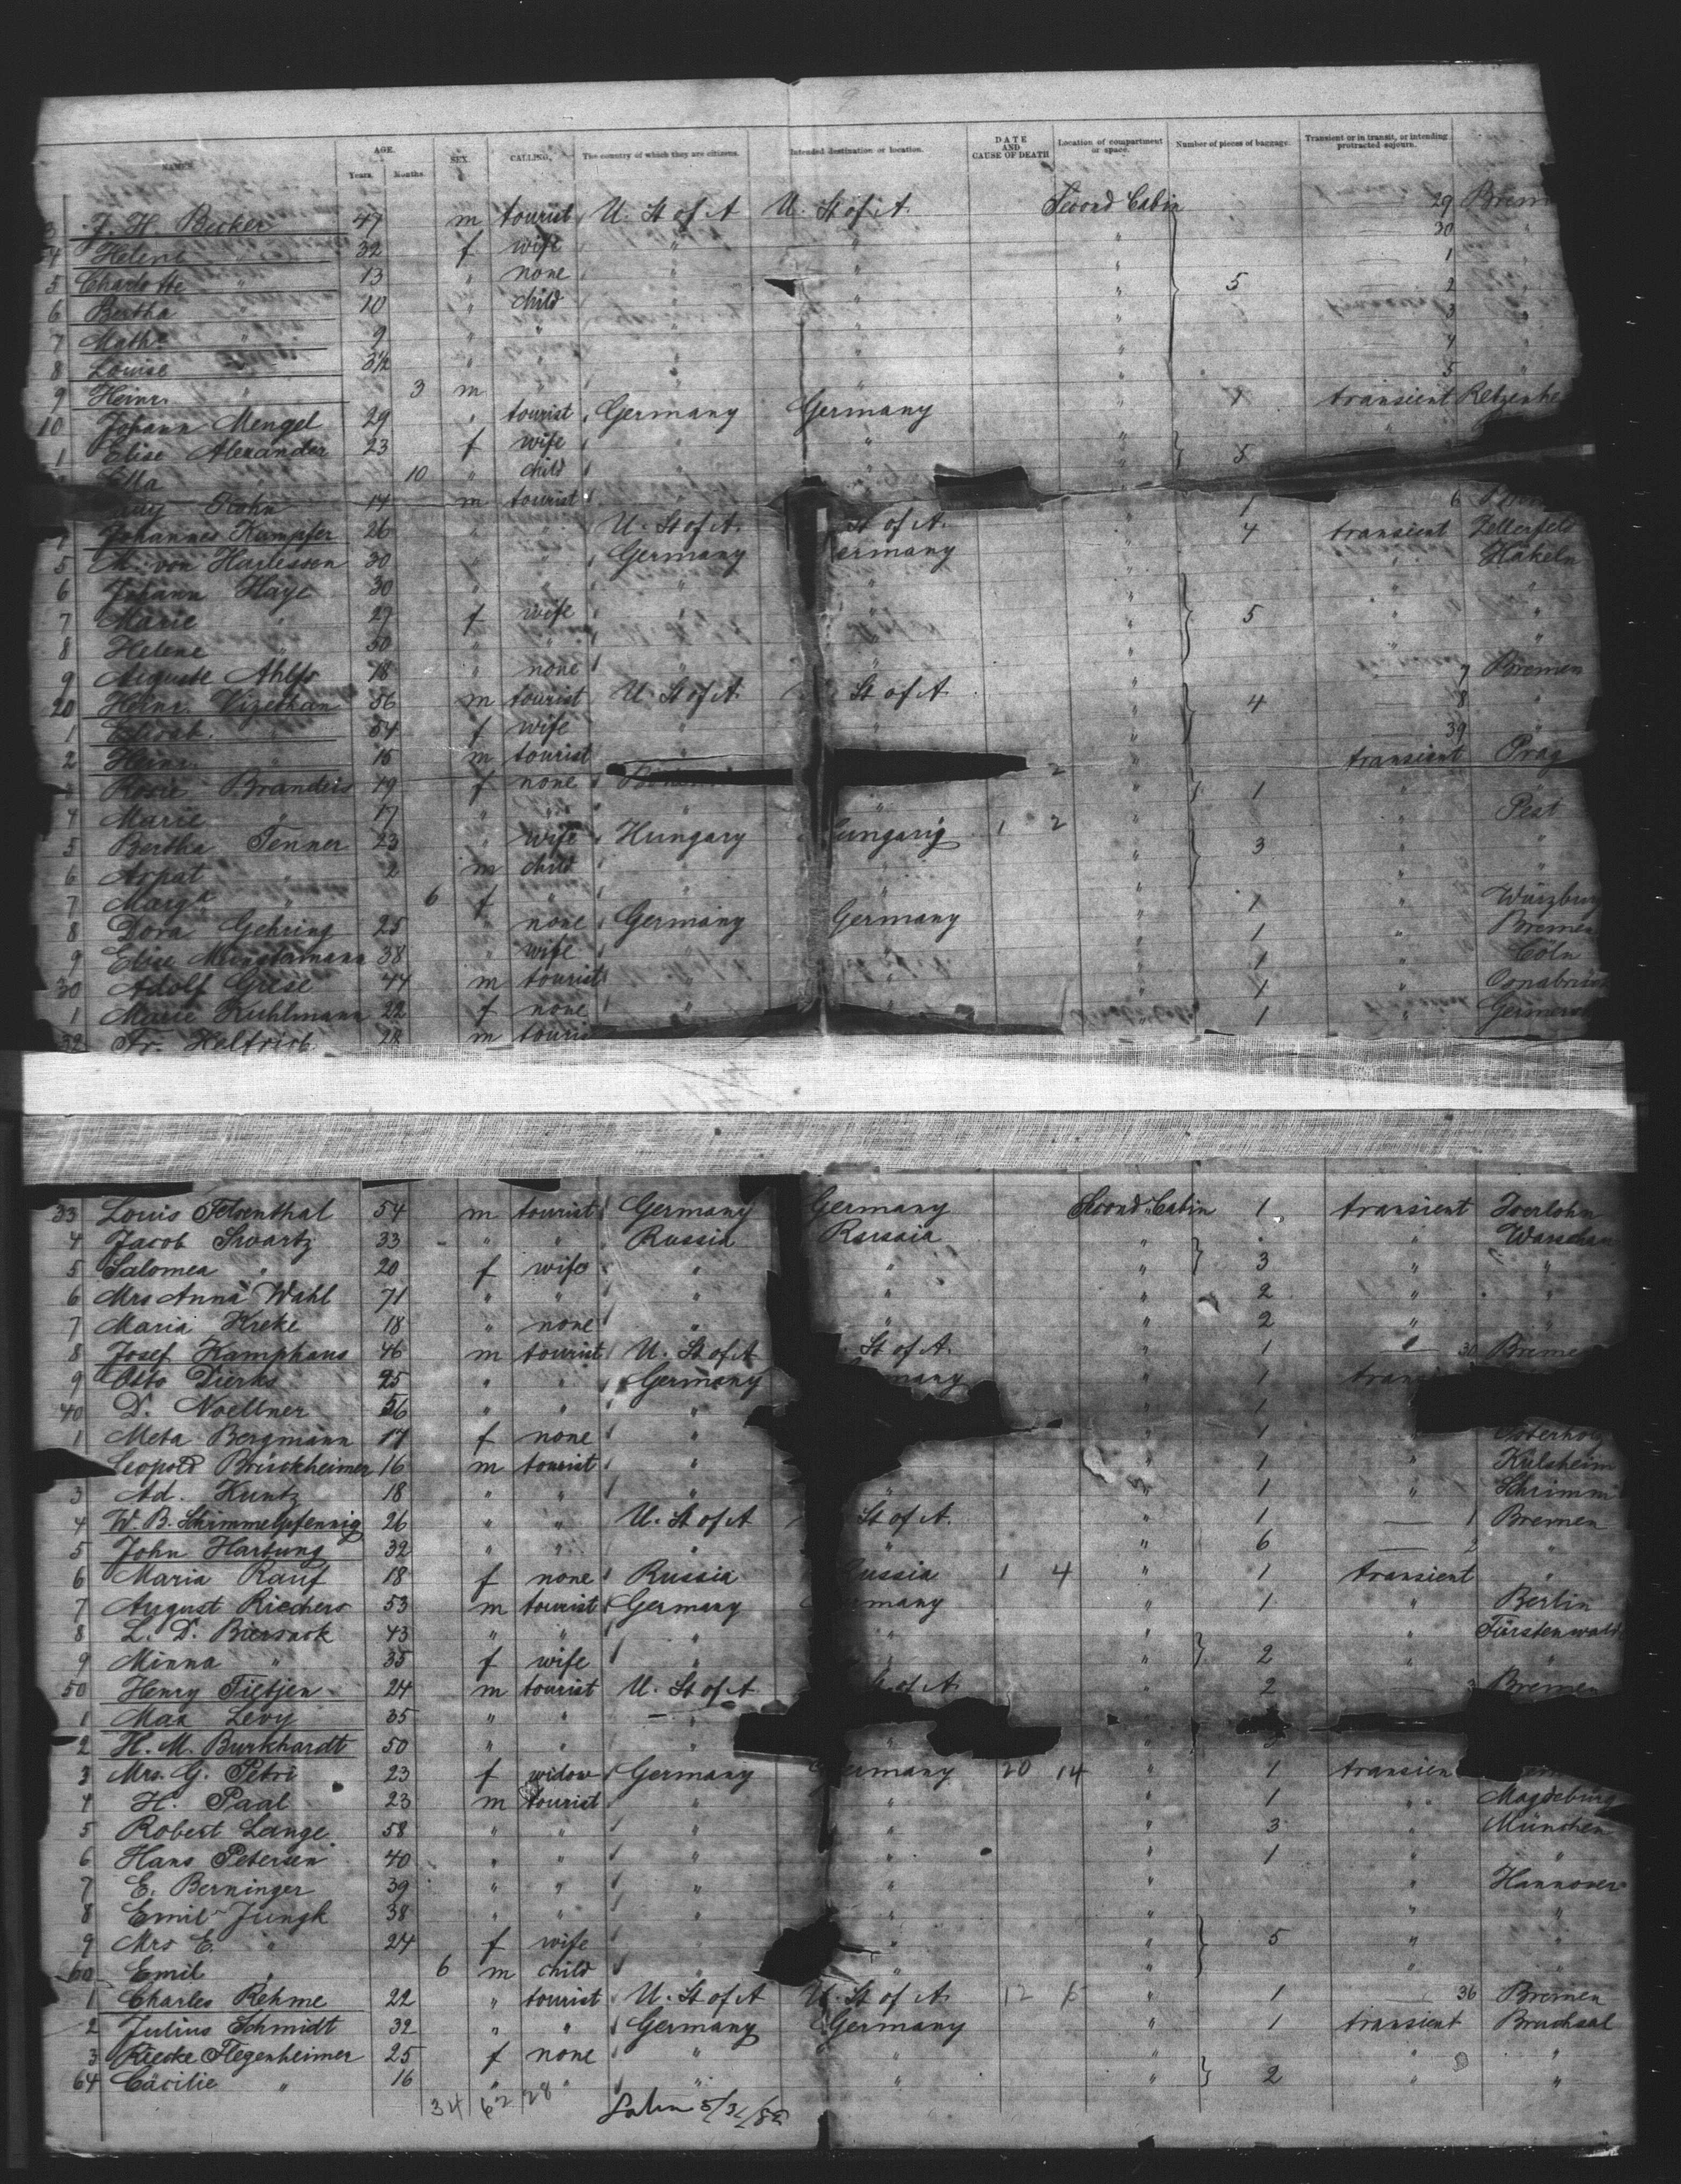 9
NAMES. AGE. Years. Months. SEX. CALLING. The country of which they are citizens. Intended destination or location. DATE AND CAUSE OF DEATH Location of compartment or space. Number of pieces of baggage. Transient or in transit, or intending protracted sojourn.
3 J. H. Becker 47 m tourist U. St of A U. St of A. Second Cabin 29 Brem
4 Helene " 32 f wife " " " 30 "
5 Charlotte " 13 " none " " " 1 "
6 Bertha " 10 " child " " " 5 2 "
7 Math. " 9 " " " " " 3 "
8 Louise " 3½ " " " " " 4 "
9 Heinr. " 3 m " " " " 5 "
10 Johann Mengel 29 " tourist Germany Germany " 1 transient Retzenhe
1 Elise Alexander 23 f wife " " " 5 "
Ella " 10 " child " " "
Kohn 14 m tourist " " 1
Johannes Kumpfer 26 " " U. St of A. St of A. " 1 6
5 M. von Harlessen 30 " " Germany ermany " 4 transient Zellerfeld
6 Johann Haye 30 " " " " " " Hakeln
7 Marie " 27 f wife " " " 5 " "
8 Helene " 30 " " " " " " "
9 Auguste Ahlfs 18 " none " " " " "
20 Heinr. Vizethan 56 m tourist U. St of A. St of A. " 7 Bremen
1 Elisab. " 54 f wife " " " 4 8 "
2 Heinr. " 15 m tourist " " 39 "
Rosie Brandeis 19 f none " transient Prag
4 Marie " 17 " " " " " 1 " "
5 Bertha Tenner 23 " wife Hungary ungarig 1 2 " " Pest
6 Arpat " 2 m child " " " 3 " "
7 Marga " 6 f " " " " " "
8 Dora Gehring 25 " none Germany Germany " 1 " Würzburg
9 Elise Münstermann 38 " wife " " " 1 " Bremen
30 Adolf Griese 44 m tourist " " 1 " Cöln
1 Marie Kuhlmann 22 f none " 1 " Osnabrück
32 Fr. Helfrich 28 m touris 1 " Germers
33 Louis Felsenthal 54 m tourist Germany Germany Second Cabin 1 transient Iserlohn
4 Jacob Swartz 33 " " Russia Russia " " Warschau
5 Salomea " 20 f wife " " " 3 " "
6 Mrs Anna Wahl 71 " " " " " 2 " "
7 Maria Kreke 18 " none " " " 2 " "
8 Josef Kamphaus 46 m tourist U. St of A St of A. " 1 30 Breme
9 Otto Dierks 25 " " Germany many " 1 trans
40 D. Noellner 56 " " " " 1
1 Meta Bergmann 17 f none " " 1 " Osterholz
Leopold Brückheimer 16 m tourist " " 1 " Külsheim
3 Ad. Kuntz 18 " " " " " 1 " Schrimm
4 W. B. Schimmelpfennig 26 " " U. St of A St of A. " 1 1 Bremen
5 John Hartung 32 " " " " " 6 2 "
6 Maria Rauf 18 f none Russia ussia 1 4 " 1 transient "
7 August Riechers 53 m tourist Germany many " 1 " Berlin
8 L. D. Biersack 43 " " " " " " Fürstenwald
9 Minna " 35 f wife " " " 2 " "
50 Henry Tietjen 24 m tourist U. St of A of A. " 2 3 Bremen
1 Max Levy 35 " " "
2 H. M. Burkhardt 50 " " " " "
3 Mrs. G. Petri 23 f widow Germany ermany 20 14 " 1 transien
4 H. Paal 23 m tourist " " " 1 " Magdeburg
5 Robert Lange 58 " " " " " 3 " München
6 Hans Petersen 40 " " " " " 1 " "
7 E. Berninger 39 " " " " " " Hannover
8 Emil Jungk 38 " " " " " " "
9 Mrs E. " 24 f wife " " " 5 " "
60 Emil " 6 m child " " " " "
1 Charles Rehme 22 " tourist U. St of A U. St of A. 12 " 1 36 Bremen
2 Julius Schmidt 32 " " Germany Germany " 1 transient Bruchsal
3 Riecke Flegenheimer 25 f none " " " " "
64 Cäcilie " 16 " " " " " 2 " "
34 62 28